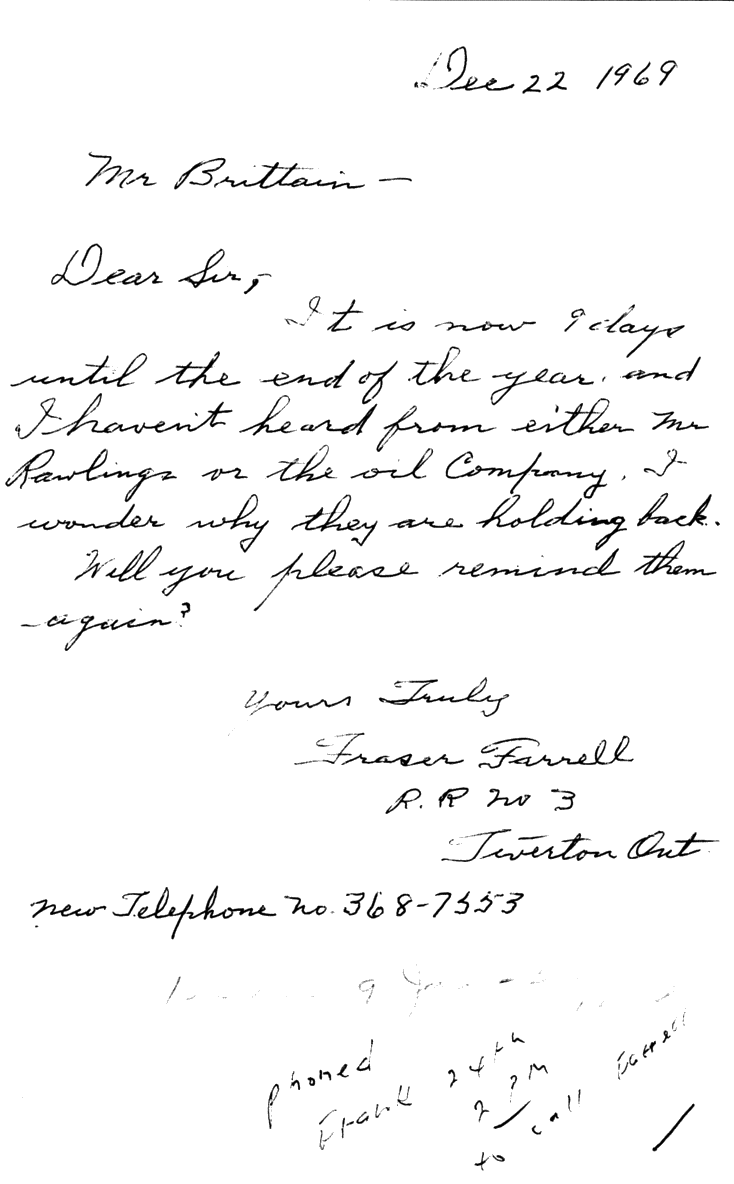 Dec 22 1969
Mr Brittain —
Dear Sir,-
It is now 9 days
until the end of the year. and
I haven't heard from either Mr
Rawlings or the oil Company. I
wonder why they are holding back.
Will you please remind them
again?
Yours Truly
Fraser Farrell
R. R no 3
Tiverton Ont
new Telephone no. 368-7553
9
phoned
Frank 24th
2 PM
to call Farrell